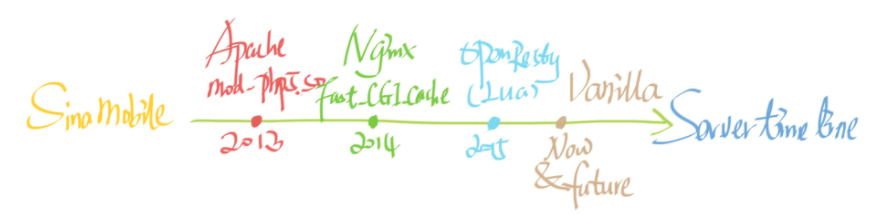 Sina Mobile
Apache
mod-php5.so
2013
Nginx
Fast_CGI_Cache
2014
OpenResty
(Lua)
2015
Vanilla
Now
& future
Server time line